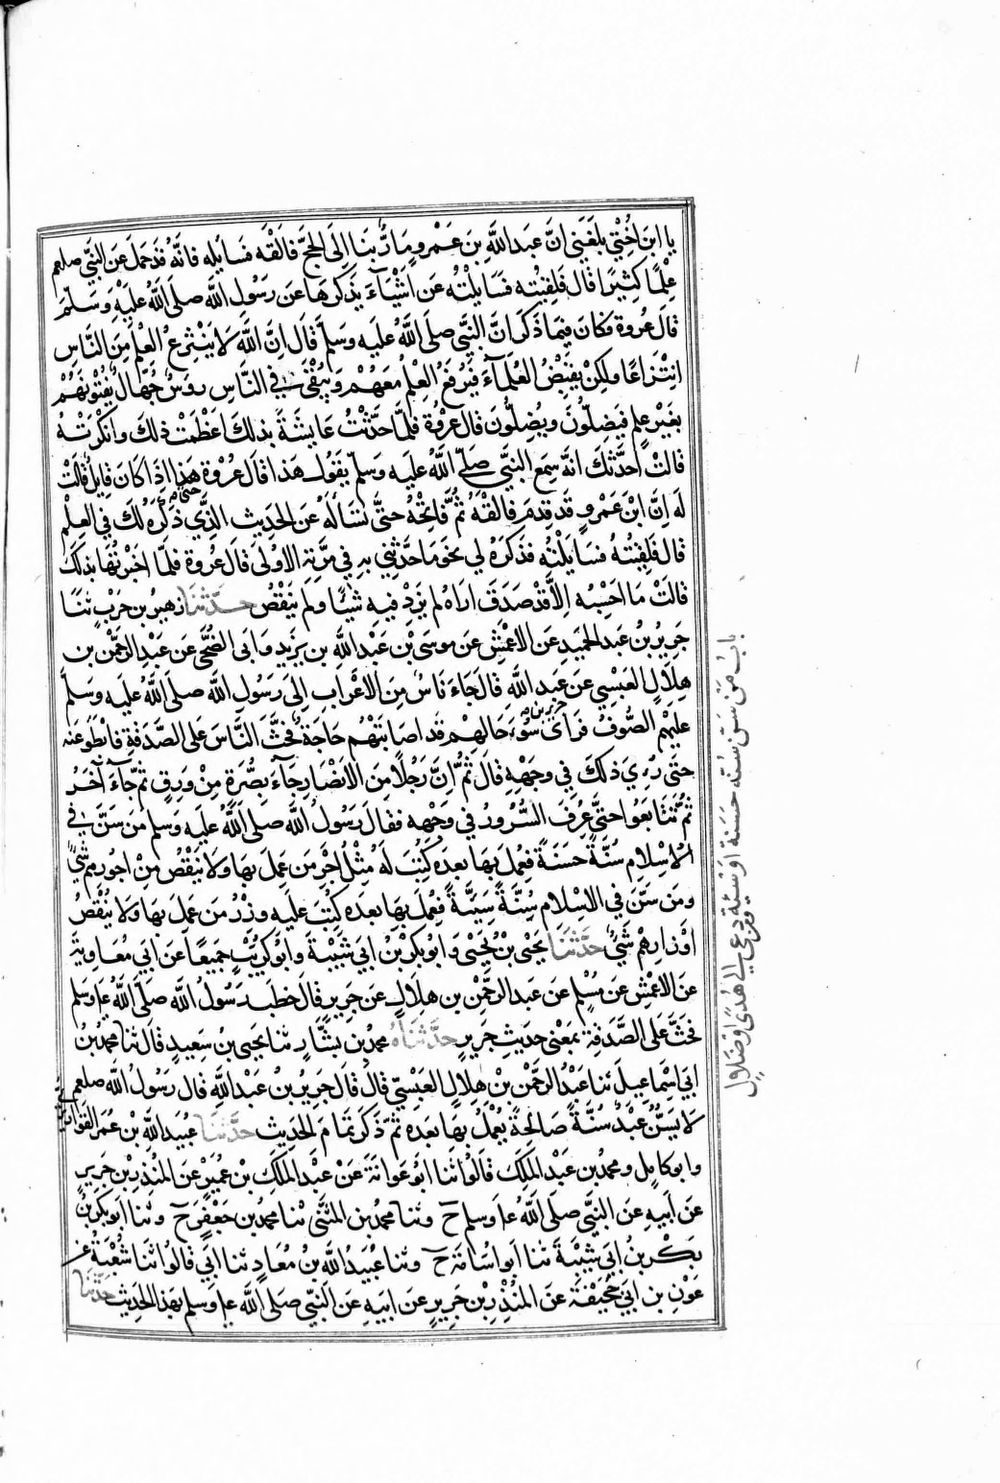 يا ابن اختي بلغني انّ عبد الله بن عمرو مارٌّ بنا الى الحجّ فالقه فسايله فانّه قد حمل عن النبيّ صلعم
علمًا كثيرًا قال فلقيته فسايلته عن اشيآء يذكرها عن رسول الله صلى الله عليه وسلم
قال عروة فكان فيما ذكر انّ النبي صلى الله عليه وسلم قال انّ الله لا ينتزع العلم من الناس
انتزاعًا ولكن يقبض العلمآء فيرفع العلم معهم ويبقى في الناس روسٌ جُهال يفتونهم
بغير علم فيضلّون ويُضلّون قال عروة فلمّا حدّثت عايشة بذلك اعظمت ذلك وانكرته
قالت احدّثك انه سمع النبي صلى الله عليه وسلم يقول هذا قال عروة حتى اذا كان قابل قالت
له انّ ابن عمرو قد قدم فالقه ثمّ فاتحه حتى تساله عن الحديث الذي ذكره لك في العلم
قال فلقيته فسايلته فذكره لي نحو ما حدّثني به في مرّته الاولى قال عروة فلمّا اخبرتها بذلك
قالت ما احسبه الّا قد صدق اراه لم يزد فيه شيئًا ولم ينقص حدّثنا زهير بن حرب ثنا
جرير بن عبد الحميد عن الاعمش عن موسى بن عبد الله بن يزيد وابى الضحى عن عبد الرحمن بن
هلال العبسي عن جرير بن عبد الله قال جاء ناسٌ من الاعراب الى رسول الله صلى الله عليه وسلم
عليهم الصّوف فراى سُوء حالهم قد اصابتهم حاجة فحثّ الناس على الصّدقة فابطئو عنه
حتى رُءي ذلك في وجهه قال ثمّ انّ رجلًا من الانصار جآء بصُرة من ورق ثم جآء آخر
ثمّ تتابعوا حتى عرف السّرور في وجهه فقال رسول الله صلى الله عليه وسلم من سنّ في
الاسلام سُنّةً حسنةً فعمل بها بعده كُتب له مثل اجر من عمل بها ولا ينقص من اجورهم شئٌ
ومن سنّ في الاسلام سُنّةً سيّئةً فعمل بها بعده كتب عليه وزر من عمل بها ولا ينقص
اوزارهم شئٌ حدّثنا يحيى بن يحيى وابو بكر بن ابي شيبة وابو كريب جميعًا عن ابي معاوية
عن الاعمش عن مسلم عن عبد الرحمن بن هلال عن جرير قال خطب رسول الله صلى الله ع‍ وسلم
فحثّ على الصّدقة بمعنى حديث جرير حدّثناه محمد بن بشّار ثنا يحيى بن سعيد قال ثنا محمد بن
ابي اسماعيل ثنا عبد الرحمن بن هلال العبسيّ قال قال جرير بن عبد الله قال رسول الله صلعم
لا يسنّ عبد سُنّةً صالحةً يعمل بها بعده ثمّ ذكر تمام الحديث حدّثنا عبيد الله بن عمر القواريري
وابو كامل ومحمد بن عبد الملك قالوا ثنا ابو عوانة عن عبد الملك بن عمير عن المنذر بن جرير
عن ابيه عن النبي صلى الله ع‍ وسلم ح وثنا محمد بن المثنى ثنا محمد بن جعفر ح وثنا ابو بكر بن
ابي شيبة ثنا ابو اسامة ح وثنا عُبيد الله بن معاذ ثنا ابي قالوا ثنا شعبة عن
عون بن ابي جحيفة عن المنذر بن جرير عن ابيه عن النبي صلى الله ع‍ وسلم بهذا الحديث حدّثنا
باب من سن سنة حسنة او سيئة ومن دعى الى هُدى او ضلال